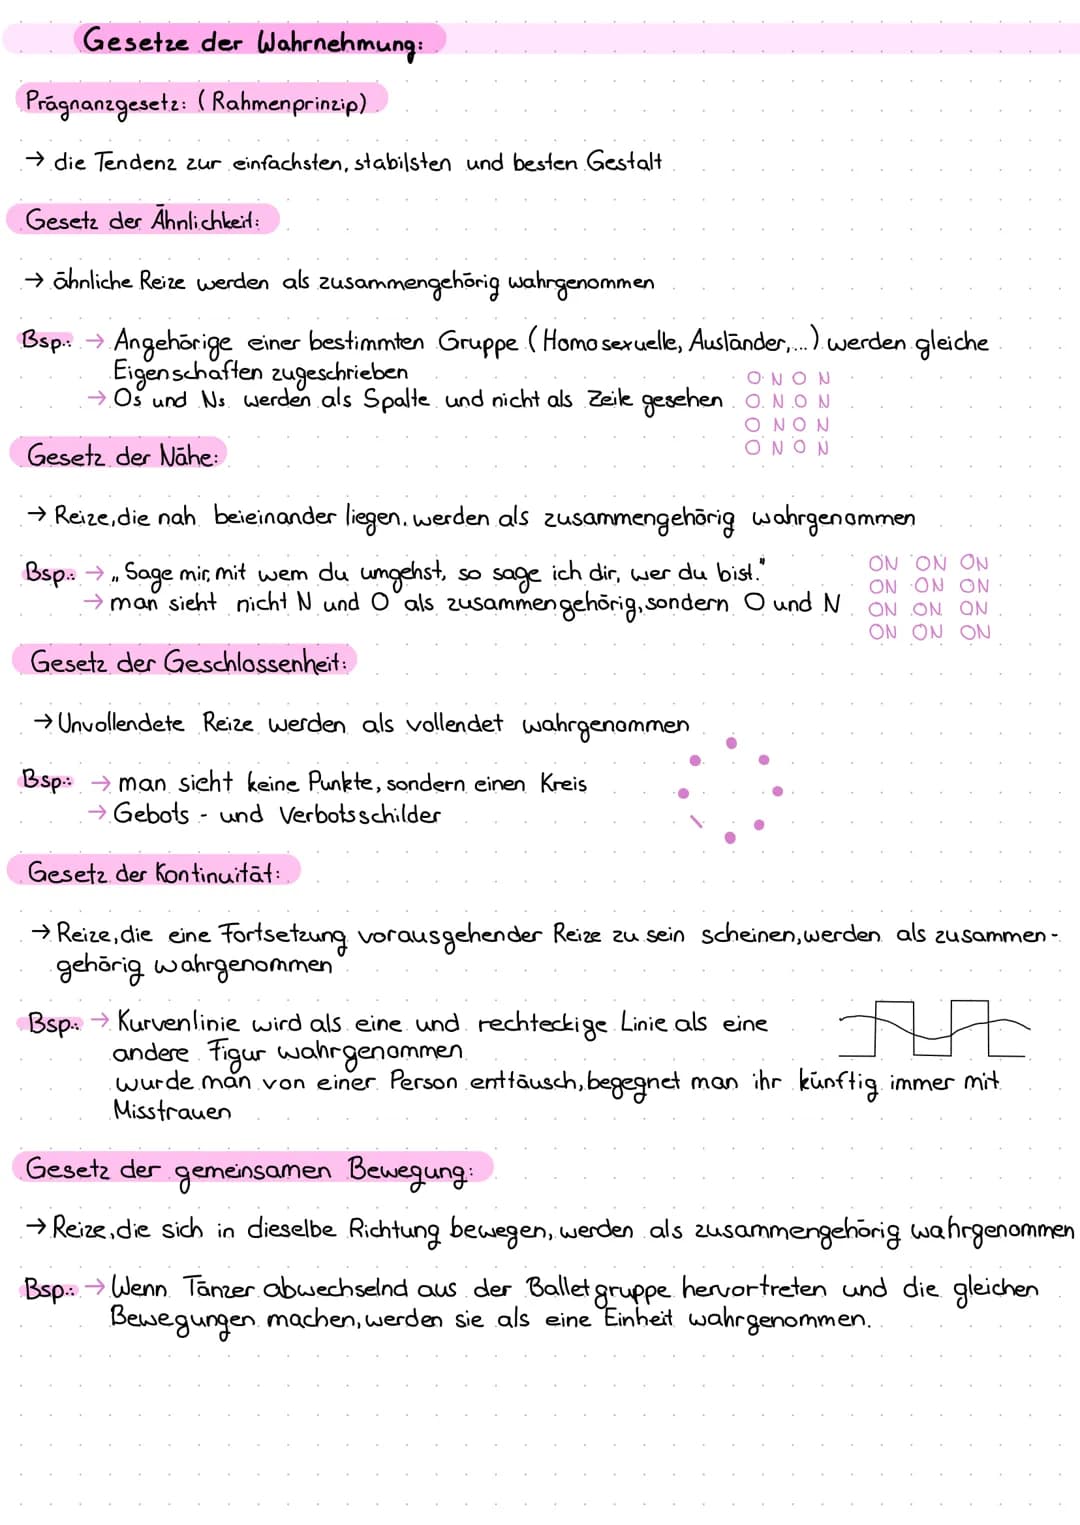 Gesetze der Wahrnehmung:
Prägnanzgesetz: (Rahmenprinzip)
→ die Tendenz zur einfachsten, stabilsten und besten Gestalt
Gesetz der Ähnlichkeit:
→ ähnliche Reize werden als zusammengehörig wahrgenommen
Bsp.: → Angehörige einer bestimmten Gruppe (Homosexuelle, Ausländer,...) werden gleiche
Eigenschaften zugeschrieben
O N O N
→ Os und Ns werden als Spalte und nicht als Zeile gesehen O N O N
O N O N
O N O N
Gesetz der Nähe:
→ Reize, die nah beieinander liegen, werden als zusammengehörig wahrgenommen
Bsp.: → „Sage mir, mit wem du umgehst, so sage ich dir, wer du bist."
ON ON ON
ON ON ON
→ man sieht nicht N und O als zusammengehörig, sondern O und N ON ON ON
ON ON ON
Gesetz der Geschlossenheit:
→ Unvollendete Reize werden als vollendet wahrgenommen
Bsp.: → man sieht keine Punkte, sondern einen Kreis
→ Gebots - und Verbotsschilder
Gesetz der Kontinuität:
→ Reize, die eine Fortsetzung vorausgehender Reize zu sein scheinen, werden als zusammen-
gehörig wahrgenommen
Bsp.: → Kurvenlinie wird als eine und rechteckige Linie als eine
andere Figur wahrgenommen
wurde man von einer Person enttäusch, begegnet man ihr künftig immer mit
Misstrauen
Gesetz der gemeinsamen Bewegung:
→ Reize, die sich in dieselbe Richtung bewegen, werden als zusammengehörig wahrgenommen
Bsp.: → Wenn Tänzer abwechselnd aus der Balletgruppe hervortreten und die gleichen
Bewegungen machen, werden sie als eine Einheit wahrgenommen.